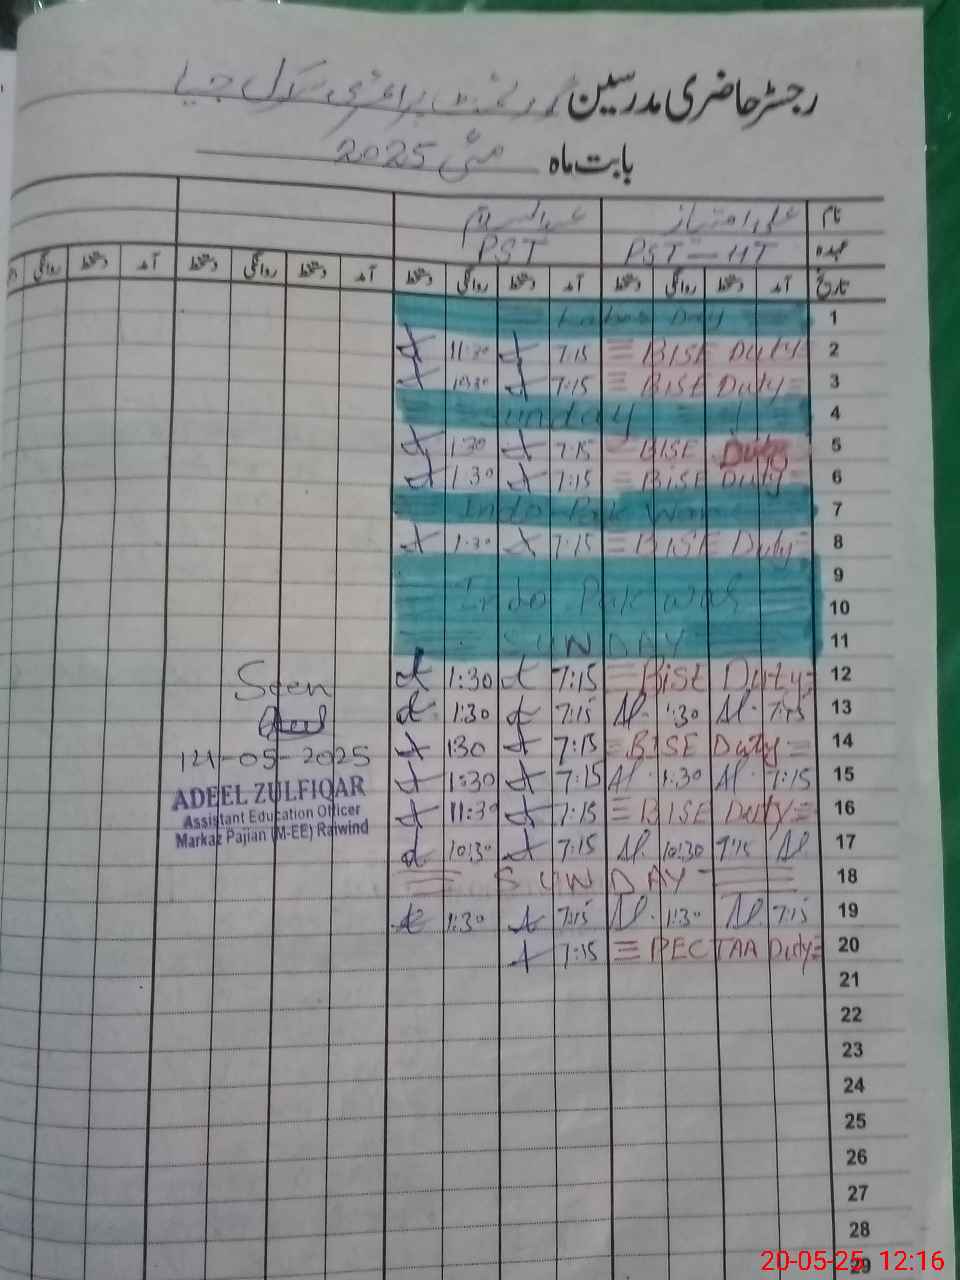 رجسٹر حاضری مدرسین گورنمنٹ پرائمری سکول جیا
بابت ماہ مئی 2025
نام علی امتیاز عبدالسلام
عہدہ PST-HT PST
تاریخ آمد دستخط روانگی دستخط آمد دستخط روانگی دستخط آمد دستخط روانگی دستخط آمد دستخط روانگی
1 Labour Day
2 BISE Duty 7:15 11:30
3 BISE Duty 7:15 10:30
4 Sunday
5 BISE Duty 7:15 1:30
6 BISE Duty 7:15 1:30
7 Indo Pak War
8 BISE Duty 7:15 1:30
9
10 Indo Pak War
11 SUNDAY
12 BISE Duty 7:15 1:30
13 7:15 Al. 1:30 Al. 7:15 1:30
14 BISE Duty 7:15 1:30
15 7:15 Al. 1:30 Al. 7:15 1:30
16 BISE Duty 7:15 11:30
17 Al. 7:15 10:30 Al. 7:15 10:30
18 SUNDAY
19 7:15 Al. 1:30 Al. 7:15 1:30
20 PECTAA Duty 7:15
21
22
23
24
25
26
27
28
29
Seen
14-05-2025
ADEEL ZULFIQAR
Assistant Education Officer
Markaz Pajian (M-EE) Raiwind
20-05-25 12:16